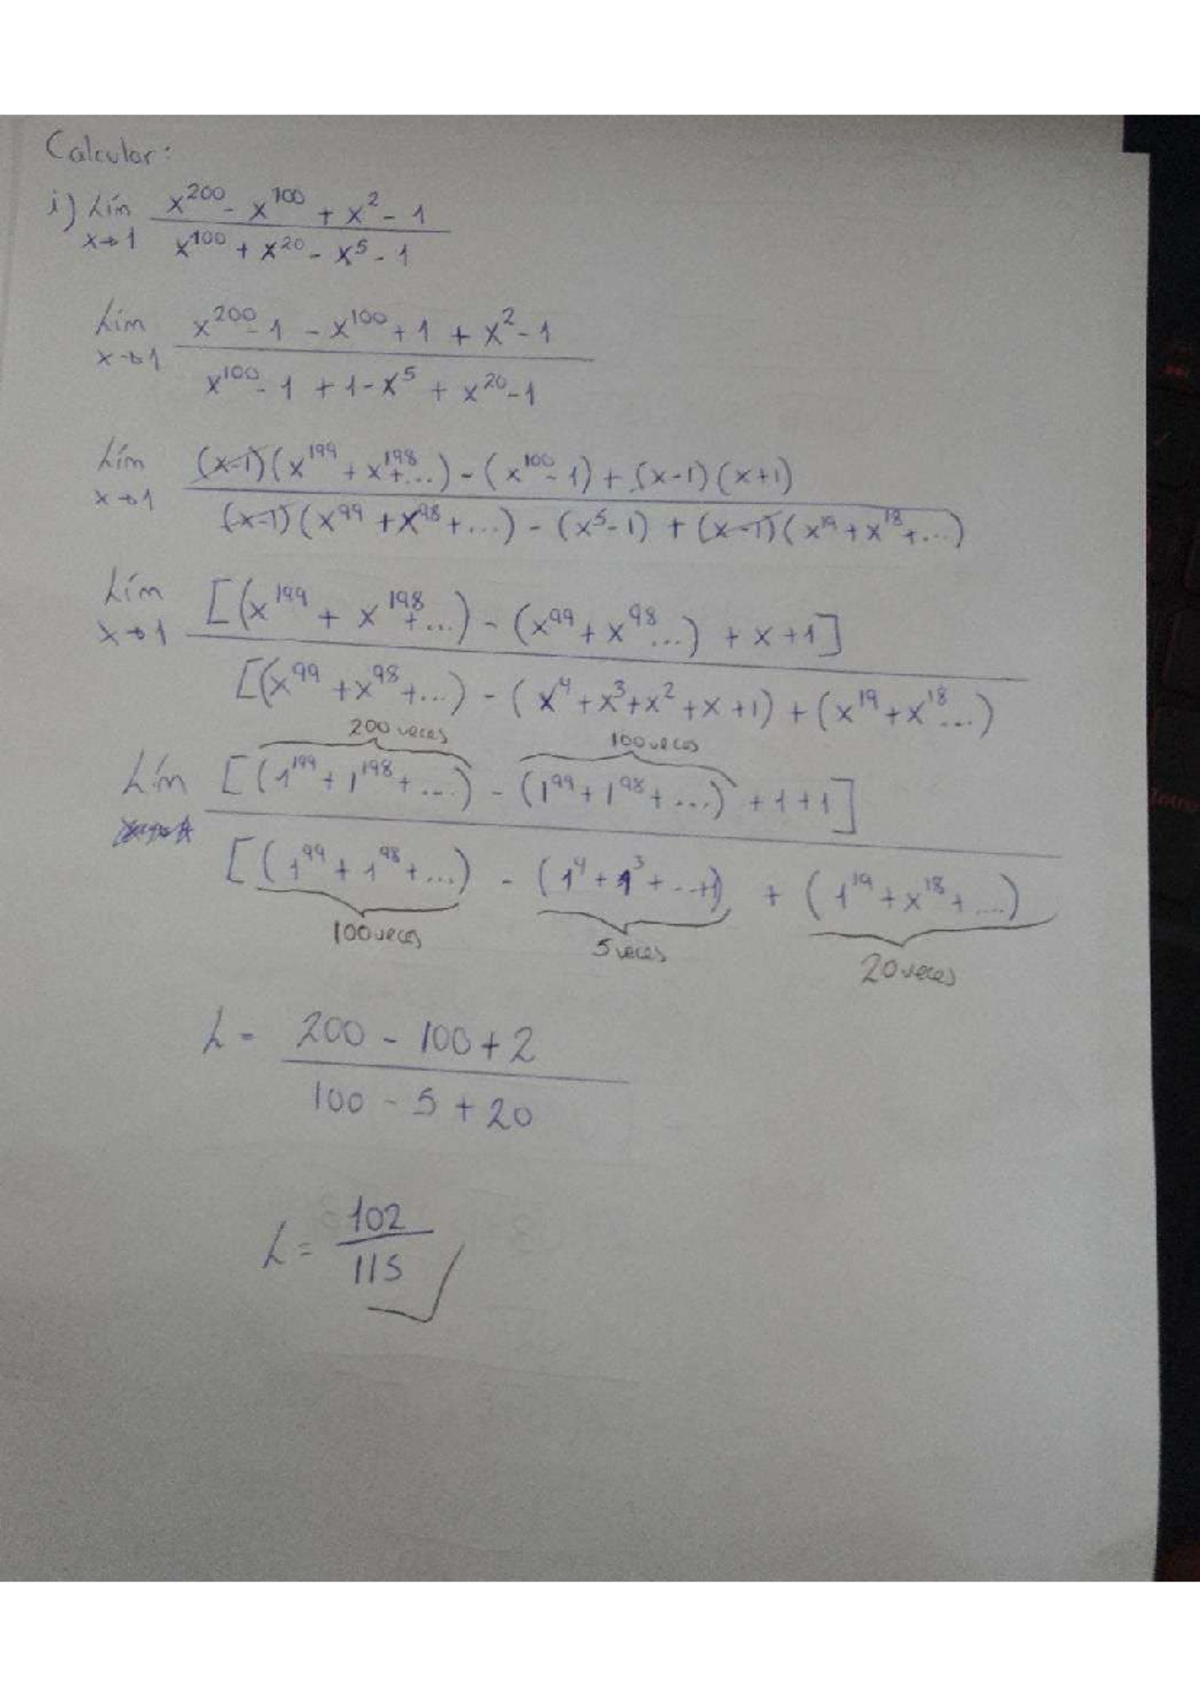 Calcular:
i) Lím x^200 - x^100 + x^2 - 1
x→1 x^100 + x^20 - x^5 - 1
Lím x^200 - 1 - x^100 + 1 + x^2 - 1
x→1 x^100 - 1 + 1 - x^5 + x^20 - 1
Lím (x-1)(x^199 + x^198 + ...) - (x^100 - 1) + (x-1)(x+1)
x→1 (x-1)(x^99 + x^98 + ...) - (x^5 - 1) + (x-1)(x^19 + x^18 + ...)
Lím [(x^199 + x^198 + ...) - (x^99 + x^98 ...) + x + 1]
x→1 [(x^99 + x^98 + ...) - (x^4 + x^3 + x^2 + x + 1) + (x^19 + x^18 ...)
200 veces 100 veces
Lím [(1^199 + 1^198 + ...) - (1^99 + 1^98 + ...) + 1 + 1]
[(1^99 + 1^98 + ...) - (1^4 + 1^3 + ... + 1) + (1^19 + x^18 + ...)
100 veces 5 veces 20 veces
L = 200 - 100 + 2
100 - 5 + 20
L = 102
115